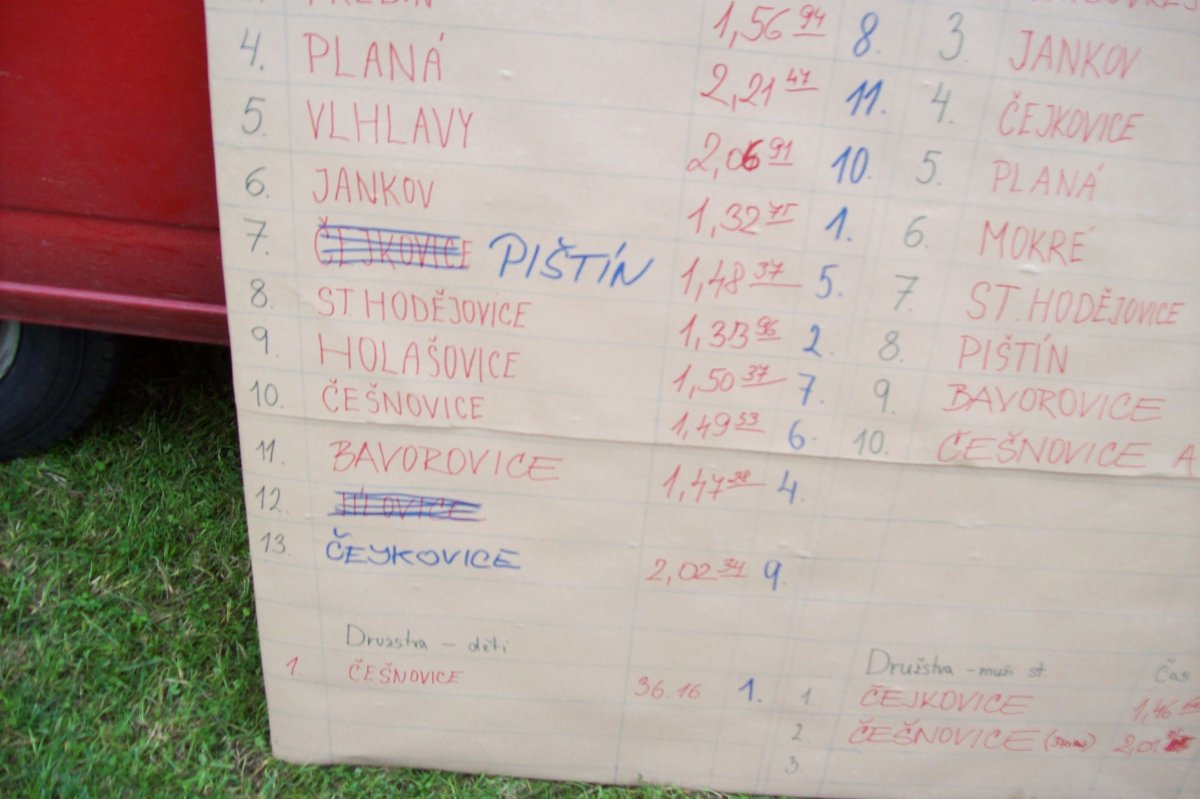 1,56 94 8. 3 JANKOV
4. PLANÁ 2,21 47 11. 4. ČEJKOVICE
5. VLHLAVY 2,06 91 10. 5. PLANÁ
6. JANKOV 1,32 75 1. 6. MOKRÉ
7. ČEJKOVICE PIŠTÍN 1,48 37 5. 7. ST. HODĚJOVICE
8. ST. HODĚJOVICE 1,33 96 2. 8. PIŠTÍN
9. HOLAŠOVICE 1,50 37 7. 9. BAVOROVICE
10. ČEŠNOVICE 1,49 53 6. 10. ČEŠNOVICE A
11. BAVOROVICE 1,47 38 4.
12.
13. ČEJKOVICE 2,02 34 9.
Družstva - děti
1. ČEŠNOVICE 36.16 1.
Družstva - muži st. Čas
1. ČEJKOVICE 1,46
2. ČEŠNOVICE 2,01
3.